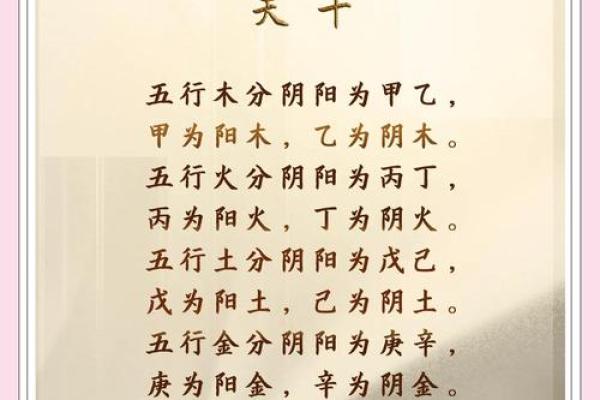 天干
五行木分阴阳为甲乙，
甲为阳木，乙为阴木。
五行火分阴阳为丙丁，
丙为阳火，丁为阴火。
五行土分阴阳为戊己，
戊为阳土，己为阴土。
五行金分阴阳为庚辛，
庚为阳金，辛为阴金。